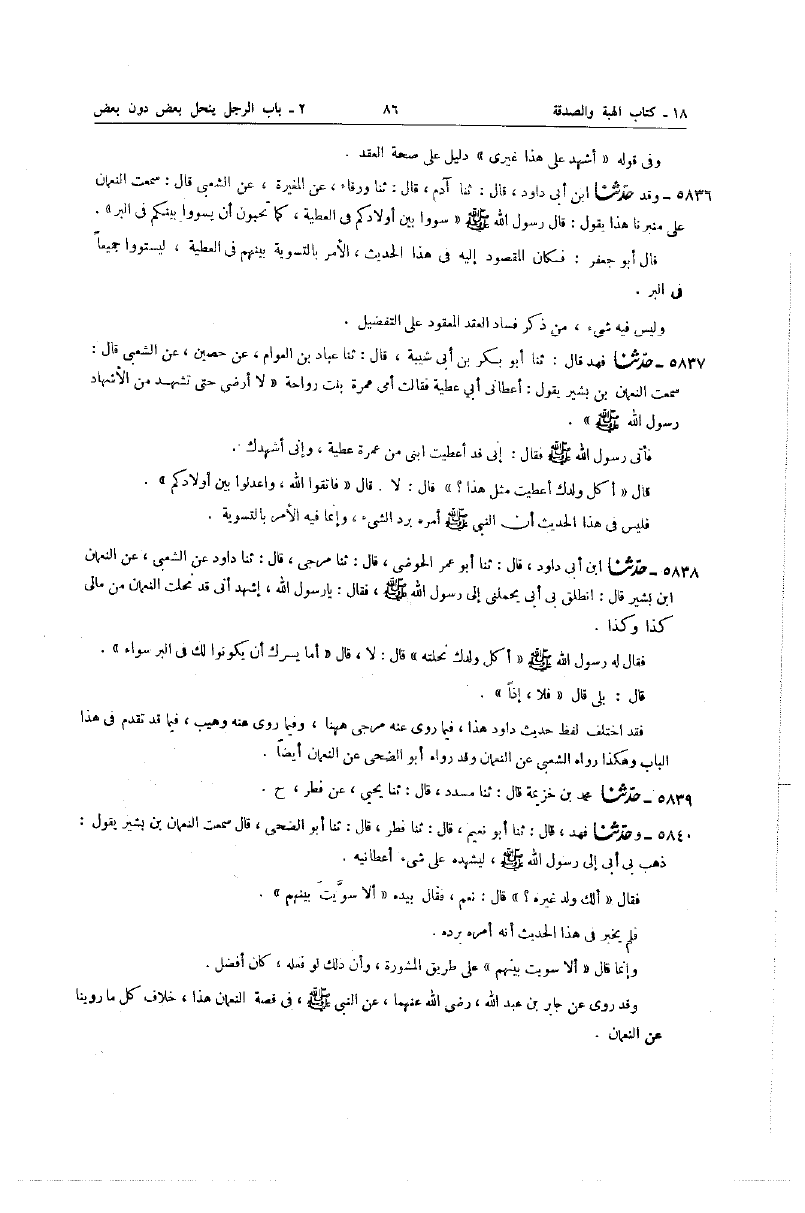 ١٨ ـ كتاب الهبة والصدقة ٨٦ ٢ ـ باب الرجل ينحل بعض دون بعض
وفى قوله « أشهد على هذا غيرى » دليل على صحة العقد .
٥٨٣٦ ـ وقد حدّثنا ابن أبى داود ، قال : ثنا آدم ، قال : ثنا ورقاء ، عن المغيرة ، عن الشعبى قال : سمعت النعمان
على منبرنا هذا يقول : قال رسول الله ﷺ « سووا بين أولادكم فى العطية ، كما تحبون أن يسووا بينكم فى البر » .
قال أبو جعفر : فكان المقصود إليه فى هذا الحديث ، الأمر بالتسوية بينهم فى العطية ، ليستووا جميعاً
فى البر .
وليس فيه شىء ، من ذكر فساد العقد المعقود على التفضيل .
٥٨٣٧ ـ حدّثنا فهد قال : ثنا أبو بكر بن أبى شيبة ، قال : ثنا عباد بن العوام ، عن حصين ، عن الشعبى قال :
سمعت النعمان بن بشير يقول : أعطانى أبي عطية فقالت أمى عمرة بنت رواحة « لا أرضى حتى تشهد من الأشهاد
رسول الله ﷺ » .
فأتى رسول الله ﷺ فقال : إنى قد أعطيت ابنى من عمرة عطية ، وإنى أشهدك .
قال « أكل ولدك أعطيت مثل هذا ؟ » قال : لا . قال « فاتقوا الله ، واعدلوا بين أولادكم » .
فليس فى هذا الحديث أن النبي ﷺ أمره برد الشىء ، وإنما فيه الأمر بالتسوية .
٥٨٣٨ ـ حدّثنا ابن أبى داود ، قال : ثنا أبو عمر الحوضى ، قال : ثنا مرجى ، قال : ثنا داود عن الشعبى ، عن النعمان
ابن بشير قال : انطلق بى أبى يحملنى إلى رسول الله ﷺ ، فقال : يارسول الله ، إشهد أنى قد نحلت النعمان من مالى
كذا وكذا .
فقال له رسول الله ﷺ « أكل ولدك نحلته » قال : لا ، قال « أما يسرك أن يكونوا لك فى البر سواء » .
قال : بلى قال « فلا ، إذاً » .
فقد اختلف لفظ حديث داود هذا ، فيما روى عنه مرجى ههنا ، وفيما روى عنه وهيب ، فيما قد تقدم فى هذا
الباب وهكذا رواه الشعبى عن النعمان وقد رواه أبو الضحى عن النعمان أيضاً .
٥٨٣٩ ـ حدّثنا محمد بن خزيمة قال : ثنا مسدد ، قال : ثنا يحيي ، عن فطر ، ح .
٥٨٤٠ ـ وحدّثنا فهد ، قال : ثنا أبو نعيم ، قال : ثنا فطر ، قال : ثنا أبو الضحى ، قال سمعت النعمان بن بشير يقول :
ذهب بى أبى إلى رسول الله ﷺ ، ليشهده على شىء أعطانيه .
فقال « ألك ولد غيره ؟ » قال : نعم ، فقال بيده « ألا سوَّيت بينهم » .
فلم يخبر فى هذا الحديث أنه أمره برده .
وإنما قال « ألا سويت بينهم » على طريق المشورة ، وأن ذلك لو فعله ، كان أفضل .
وقد روى عن جابر بن عبد الله ، رضى الله عنهما ، عن النبي ﷺ ، فى قصة النعمان هذا ، خلاف كل ما روينا
عن النعمان .